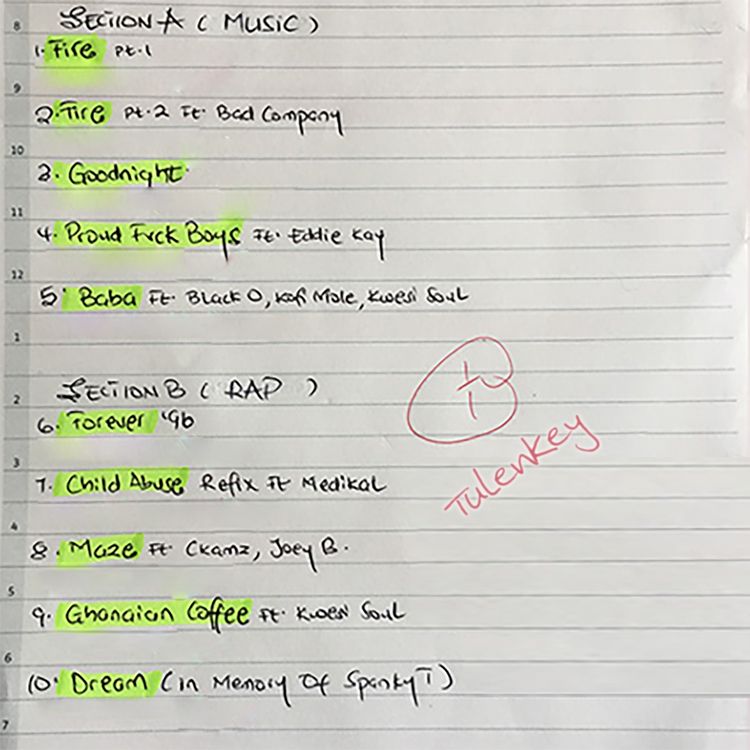 8 SECTION A ( MUSIC )
1. Fire Pt. 1
9
2. Fire Pt. 2 Ft. Bad Company
10
3. Goodnight
11
4. Proud Fvck Boys Ft. Eddie Kay
12
5. Baba Ft. Black O, Kofi Mole, Kwesi Soul
1
2 SECTION B ( RAP )
6. Forever '96
3
7. Child Abuse Refix Ft Medikal
4
8. Maze Ft Ckamz, Joey B.
5
9. Ghanaian Coffee Ft. Kwesi Soul
6
10. Dream (in Memory Of Spanky T)
7
1/1
Tulenkey